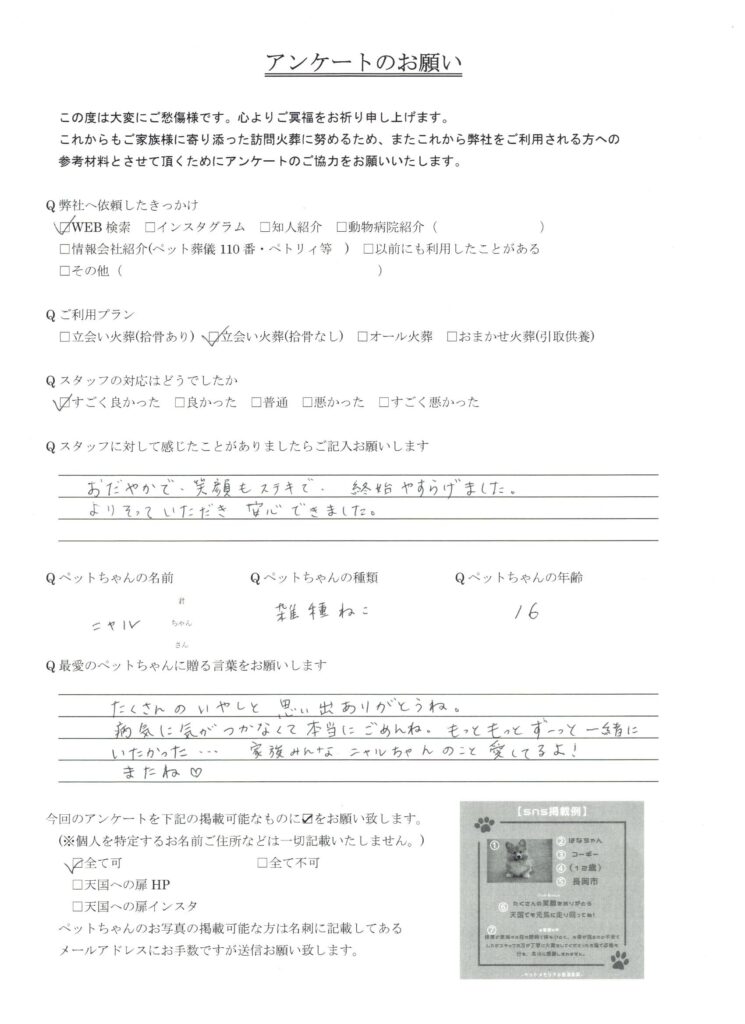 アンケートのお願い
この度は大変にご愁傷様です。心よりご冥福をお祈り申し上げます。
これからもご家族様に寄り添った訪問火葬に努めるため、またこれから弊社をご利用される方への
参考材料とさせて頂くためにアンケートのご協力をお願いいたします。
Q 弊社へ依頼したきっかけ
☑WEB 検索 □インスタグラム □知人紹介 □動物病院紹介（ ）
□情報会社紹介(ペット葬儀 110 番・ペトリィ等 ) □以前にも利用したことがある
□その他（ ）
Q ご利用プラン
□立会い火葬(拾骨あり) ☑立会い火葬(拾骨なし) □オール火葬 □おまかせ火葬(引取供養)
Q スタッフの対応はどうでしたか
☑すごく良かった □良かった □普通 □悪かった □すごく悪かった
Q スタッフに対して感じたことがありましたらご記入お願いします
おだやかで、笑顔もステキで、 終始やすらげました。
よりそっていただき 安心できました。
Q ペットちゃんの名前 Q ペットちゃんの種類 Q ペットちゃんの年齢
君
ニャル ちゃん 雑種ねこ 16
さん
Q 最愛のペットちゃんに贈る言葉をお願いします
たくさんのいやしと 思い出ありがとうね。
病気に気がつかなくて本当にごめんね。もっともっとずーっと一緒に
いたかった… 家族みんな ニャルちゃんのこと愛してるよ!
またね♡
今回のアンケートを下記の掲載可能なものに☑をお願い致します。
(※個人を特定するお名前ご住所などは一切記載いたしません。)
☑全て可 □全て不可
□天国への扉 HP
□天国への扉インスタ
ペットちゃんのお写真の掲載可能な方は名刺に記載してある
メールアドレスにお手数ですが送信お願い致します。
【sns掲載例】
① ② はなちゃん
③ コーギー
④ (12歳)
⑤ 長岡市
⑥ たくさんの笑顔をありがとう
天国でも元気に走り回ってね!
⑦